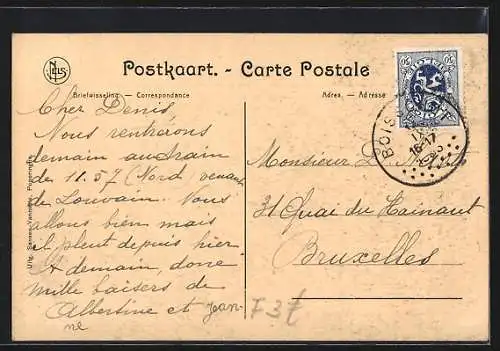 NELS
Postkaart. - Carte Postale
Briefwisseling — Correspondance
Adres. — Adresse
Cher Denis
Nous rentrerons
demain au train
de 11.57 (Nord, venant
de Louvain. Nous
allons bien mais
il pleut depuis hier
A demain, donc
mille baisers de
Albertine et Jean-
ne
Monsieur D.
31 Quai du Hainaut
Bruxelles
16-17
F 3t